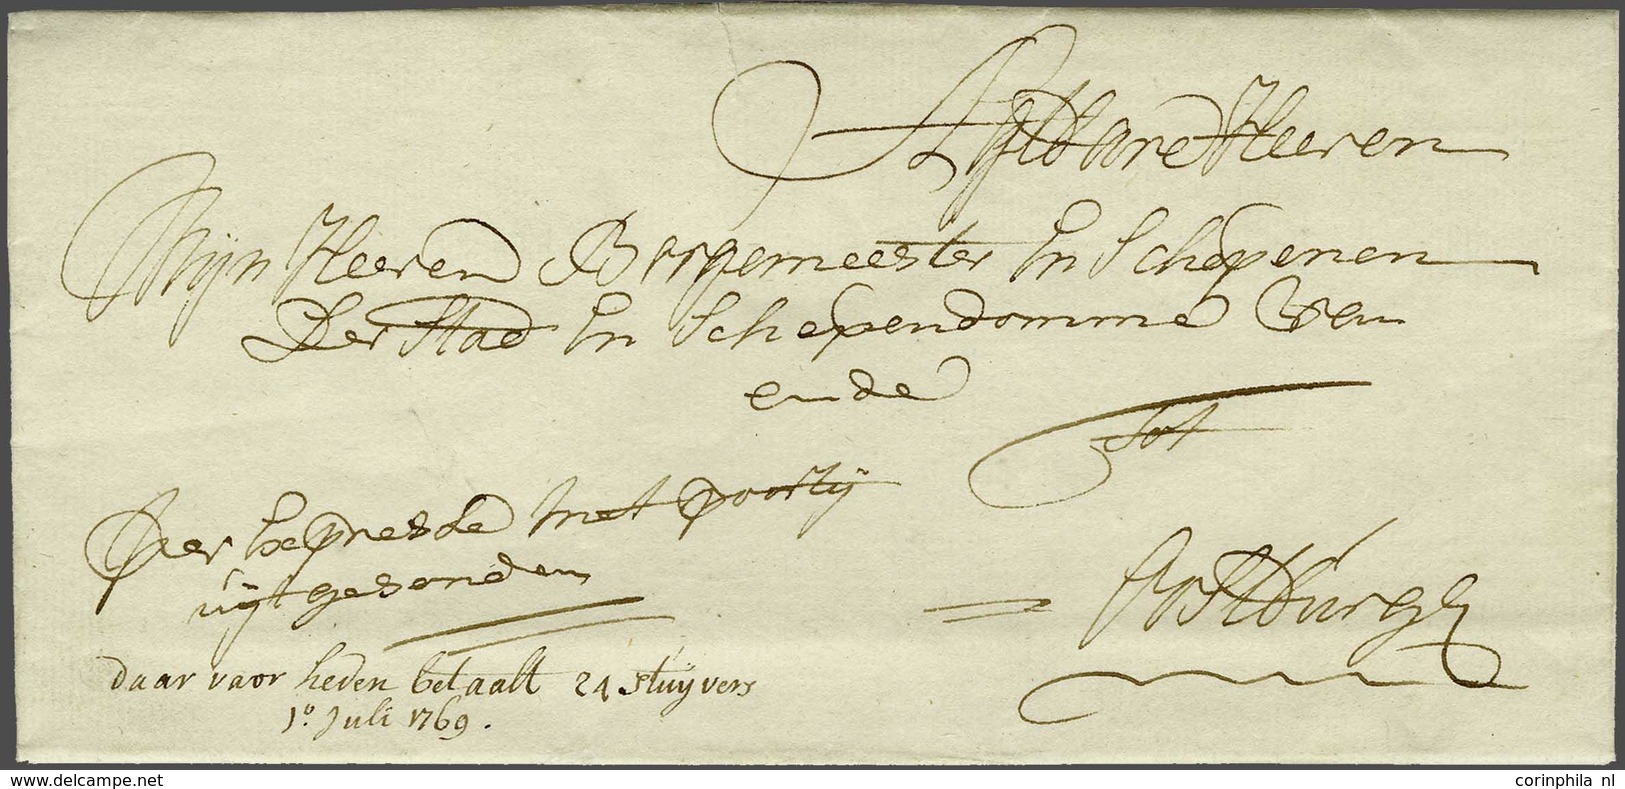 Agtbare Heeren
Mijn Heeren Borgemeester En Schepenen
Der Stad En Schependomme Van
ende
tot
Per Expresse met poortij
uijtgesonden
Oostburgh
daar vaor heden betaalt 24 stuijvers
1º Juli 1769.
www.delcampe.net
corinphila nl